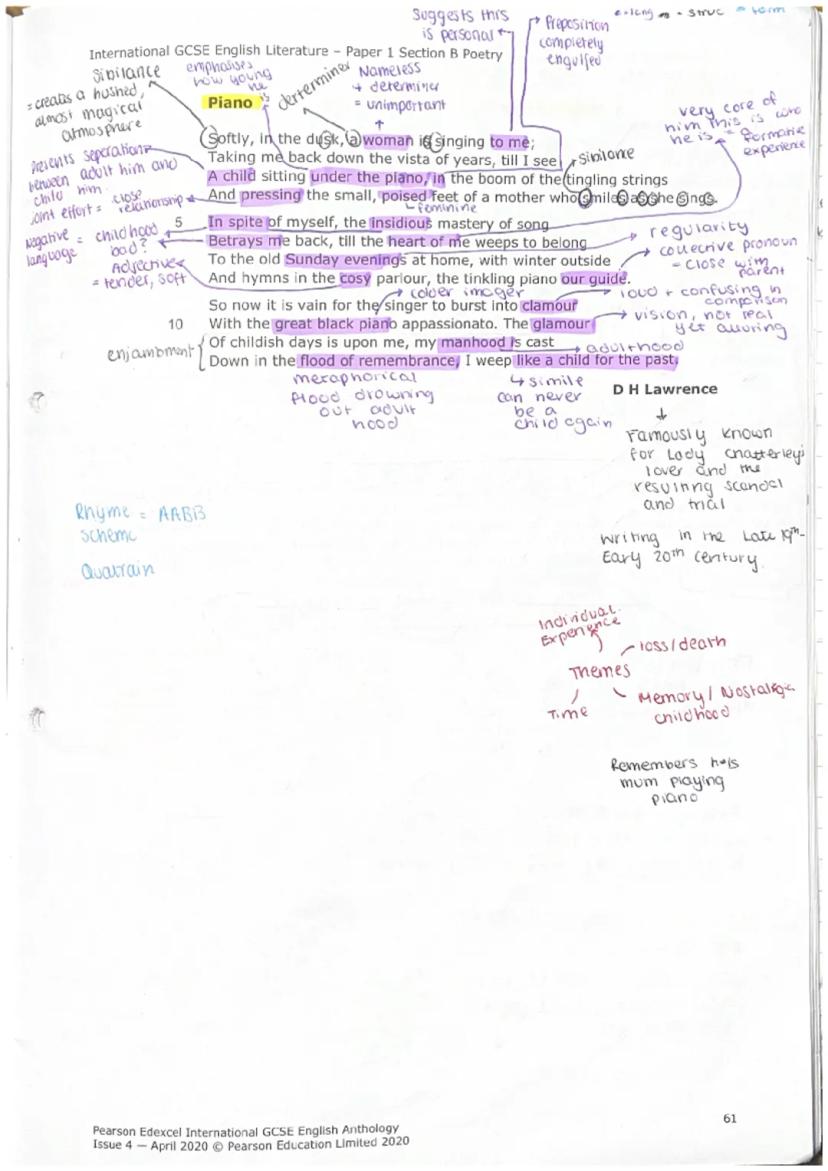 Suggests this
is personal
Preposition
completely
engulfed
International GCSE English Literature – Paper 1 Section B Poetry
Sibilance
= creates a hushed,
almost magical
atmosphere
emphasises
how young
he is
determiner
Nameless
↳ determiner
= unimportant
very core of
him this is who
he is = formative
experience
Piano
Softly, in the dusk, a woman is singing to me;
Taking me back down the vista of years, till I see
A child sitting under the piano, in the boom of the tingling strings
And pressing the small, poised feet of a mother who smiles as she sings.
Presents seperation
between adult him and
child him.
joint effort = close
relationship
sibilance
feminine
5 In spite of myself, the insidious mastery of song
Betrays me back, till the heart of me weeps to belong
To the old Sunday evenings at home, with winter outside
And hymns in the cosy parlour, the tinkling piano our guide.
Negative = childhood
language bad?
Adjective
= tender, soft
regularity
collective pronoun
= close with
parent
So now it is vain for the singer to burst into clamour
10 With the great black piano appassionato. The glamour
Of childish days is upon me, my manhood is cast
Down in the flood of remembrance, I weep like a child for the past.
colder imager
loud + confusing in
comparison
vision, not real
yet alluring
enjambment
adulthood
metaphorical
flood drowning
out adult
hood
↳ simile
can never
be a
child again
D H Lawrence
Famously known
for Lady Chatterley's
lover and the
resulting scandal
and trial
Writing in the Late 19th-
Early 20th century.
Rhyme = AABB
scheme
Quatrain
Individual
Experience
loss/death
Themes
Time
Memory/ Nostalgia
childhood
Remembers his
mum playing
piano
61
Pearson Edexcel International GCSE English Anthology
Issue 4 – April 2020 © Pearson Education Limited 2020